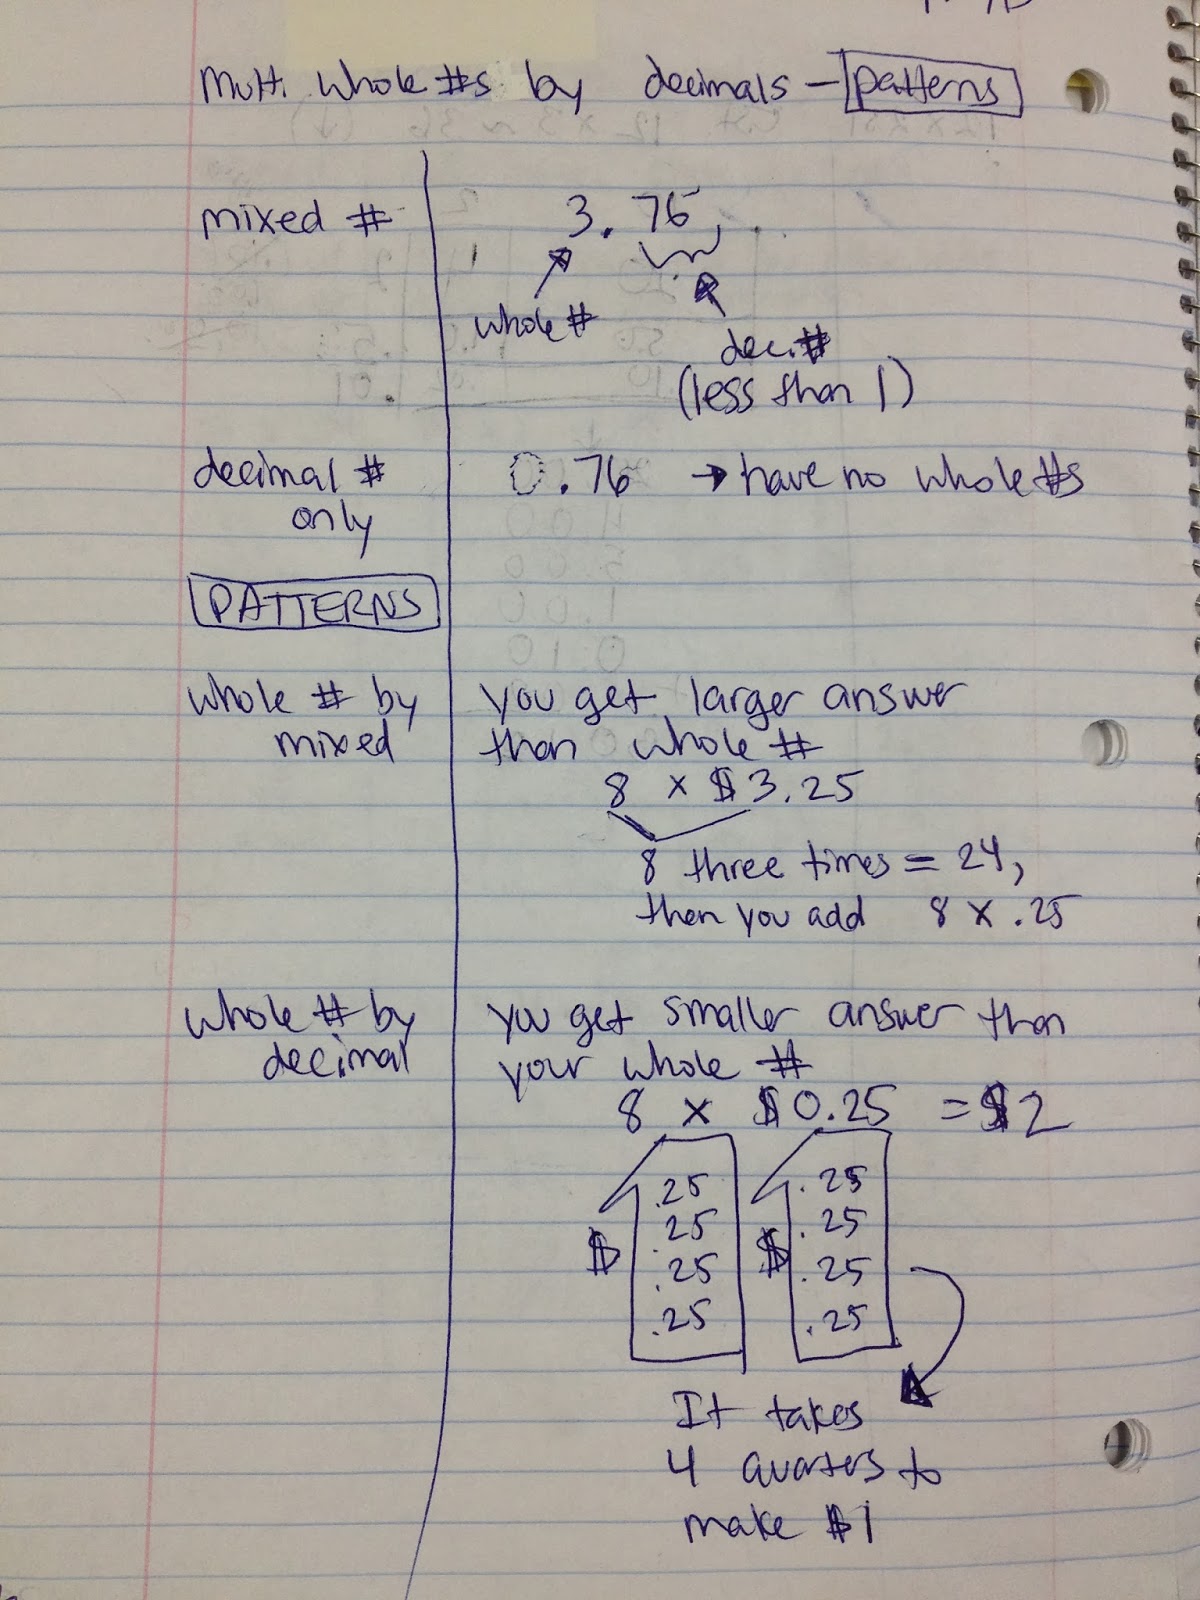 Mult. Whole #s by decimals - patterns
mixed # 3.76
whole #
dec. #
(less than 1)
decimal # 0.76 → have no whole #s
only
PATTERNS
whole # by you get larger answer
mixed than whole #
8 x $3.25
8 three times = 24,
then you add 8 x .25
whole # by you get smaller answer than
decimal your whole #
8 x $0.25 = $2
.25 .25
.25 .25
$ $
.25 .25
.25 .25
It takes
4 quarters to
make $1